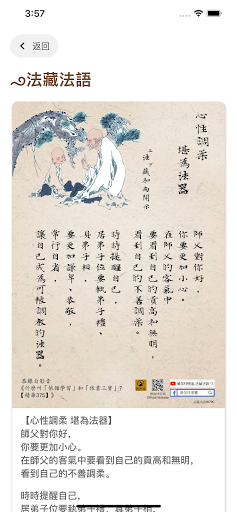 3:57
返回
法藏法語
心性調柔
堪為法器
上法下藏和尚開示
師父對你好,
你要更加小心。
在師父的客氣中
要看到自己的貢高和無明,
看到自己的不善調柔。
時時提醒自己,
居弟子位要執弟子禮,
具弟子相,
常行自者,
要更加謙卑、恭敬,
讓自己成為可被調教的法器。
恭錄自影音
《什麼叫「依師學習」和「依眾工習」?
【精華375】》
【心性調柔 堪為法器】
師父對你好,
你要更加小心。
在師父的客氣中要看到自己的貢高和無明,
看到自己的不善調柔。
時時提醒自己,
居弟子位要執弟子禮、具弟子相、